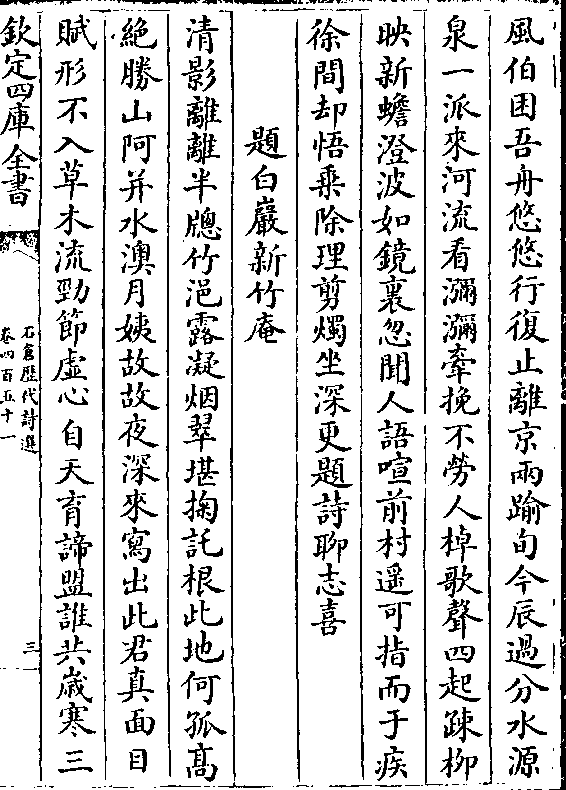 風伯困吾舟悠悠行復止離京兩踰旬今辰過分水源
泉一派來河流看瀰瀰牽挽不勞人棹歌聲四起踈栁
映新蟾澄波如鏡裏忽聞人語喧前村遥可指而于疾
徐間却悟乗除理剪燭坐深更題詩聊志喜
題白巖新竹庵
清影離離半牕竹浥露凝烟翠堪掬託根此地何孤髙
絶勝山阿并水澳月姨故故夜深來寫出此君真面目
賦形不入草木流勁節虛心自天育諦盟誰共歳寒三
欽定四庫全書
石倉歴代詩選
卷四百五十一
三